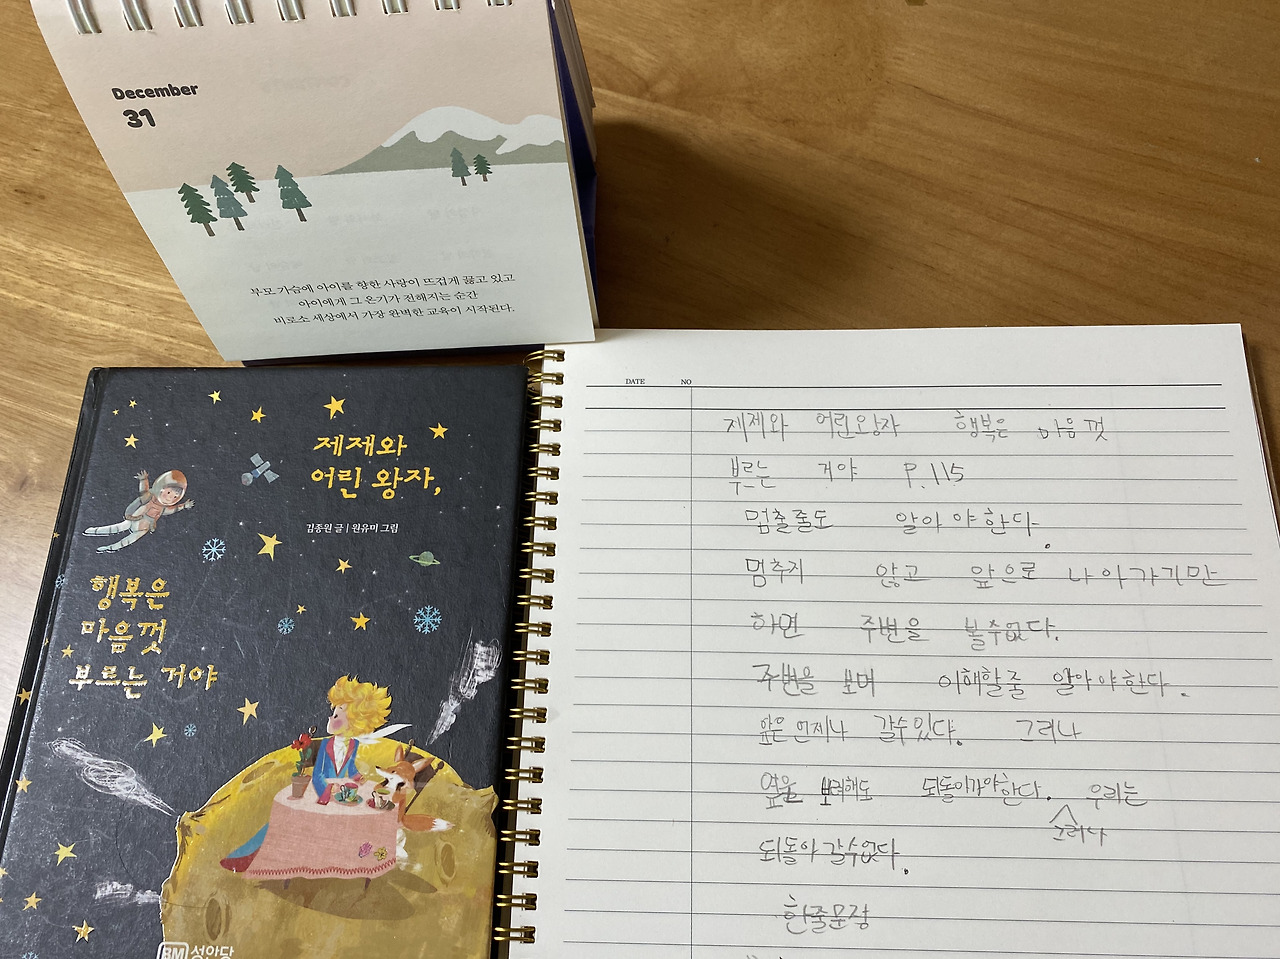 December
31
부모 가슴에 아이를 향한 사랑이 뜨겁게 끓고 있고
아이에게 그 온기가 전해지는 순간
비로소 세상에서 가장 완벽한 교육이 시작된다.
제제와
어린 왕자,
김종원 글 | 원유미 그림
행복은
마음껏
부르는 거야
BM 성안당
DATE NO
제제와 어린왕자 행복은 마음껏
부르는 거야 P.115
멈출줄도 알아야한다.
멈추지 않고 앞으로 나아가기만
하면 주변을 볼수없다.
주변을 보며 이해할줄 알아야한다.
앞은 언제나 갈수있다. 그러나
옆을 보려해도 되돌아가야한다. 우리는
그러나
되돌아 갈수없다.
한줄문장